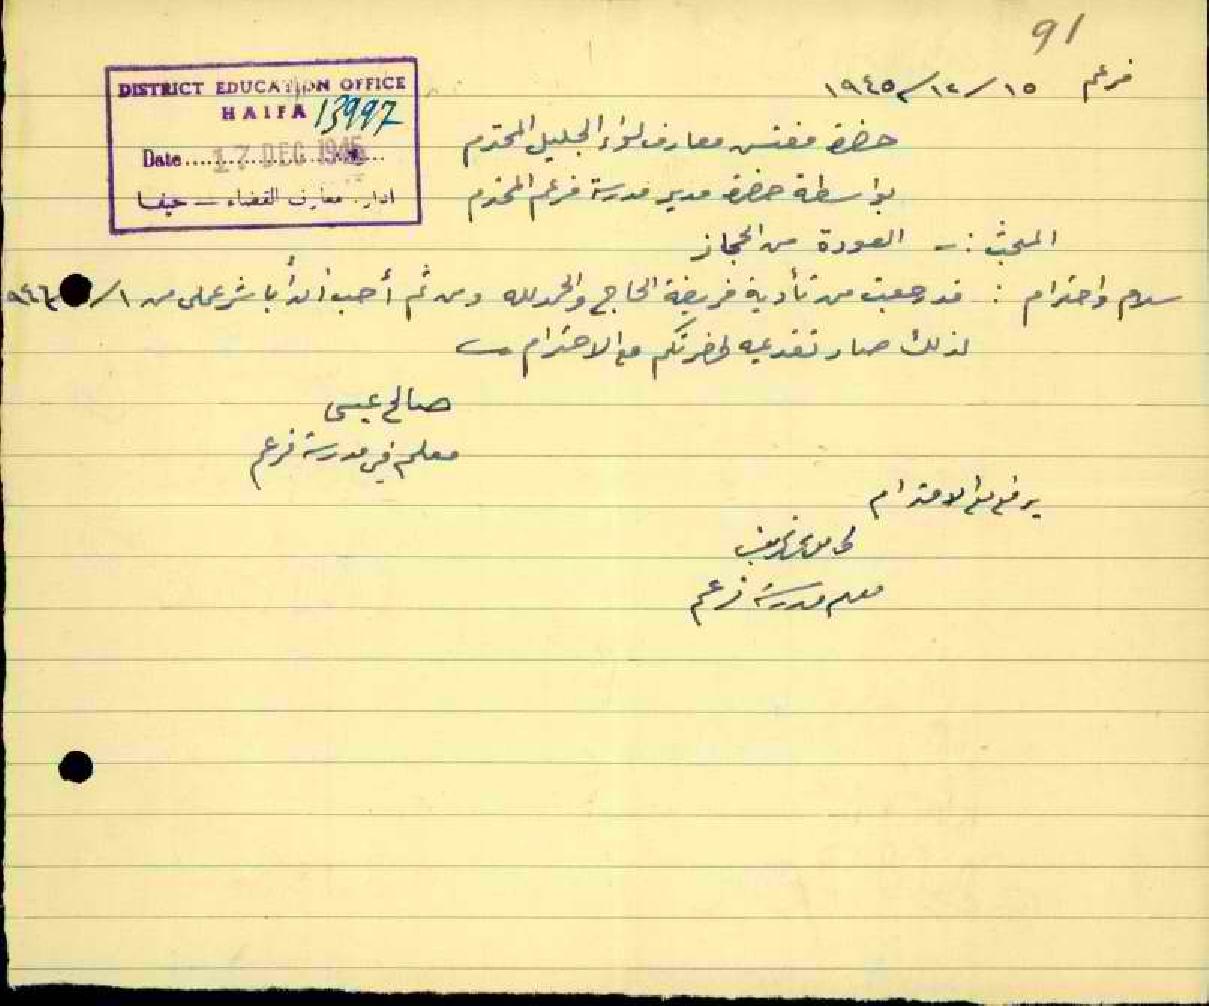 91
فرعم ١٥/١٢/١٩٤٥م
DISTRICT EDUCATION OFFICE
HAIFA 13997
Date 17 DEC 1945
ادارة معارف القضاء — حيفا
حضرة مفتش معارف لواء الجليل المحترم
بواسطة حضرة مدير مدرسة فرعم المحترم
المبحث :- العودة من الحجاز
سلام واحترام : قد رجعت من تأدية فريضة الحاج والحمد لله ومن ثم أحب أن أباشر عملي من ١/
لذلك صار تقديمه لحضرتكم مع الاحترام
صالح عيسى
معلم في مدرسة فرعم
يرفع مع الاحترام
معلم مدرسة فرعم